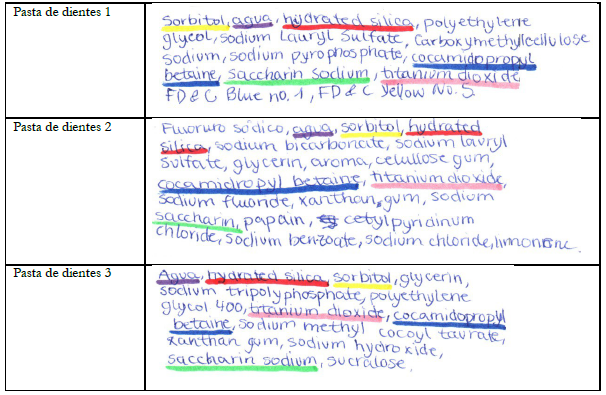 Pasta de dientes 1
Sorbitol, agua, hydrated silica, polyethylene
glycol, sodium Lauryl Sulfate, Carboxymethylcellulose
sodium, sodium pyrophosphate, cocamidopropyl
betaine, saccharin sodium, titanium dioxide
FD&C Blue no. 1, FD&C Yellow No. 5
Pasta de dientes 2
Fluoruro sódico, agua, sorbitol, hydrated
silica, sodium bicarbonate, sodium lauryl
sulfate, glycerin, aroma, celullose gum,
cocamidropyl betaine, titanium dioxide,
sodium fluoride, xanthan gum, sodium
saccharin, papain, cetylpyridinum
chloride, sodium benzoate, sodium chloride, limonene.
Pasta de dientes 3
Agua, hydrated silica, sorbitol, glycerin,
sodium tripolyphosphate, polyethylene
glycol 400, titanium dioxide, cocamidopropyl
betaine, sodium methyl cocoyl taurate,
xanthan gum, sodium hydroxide,
saccharin sodium, sucralose.